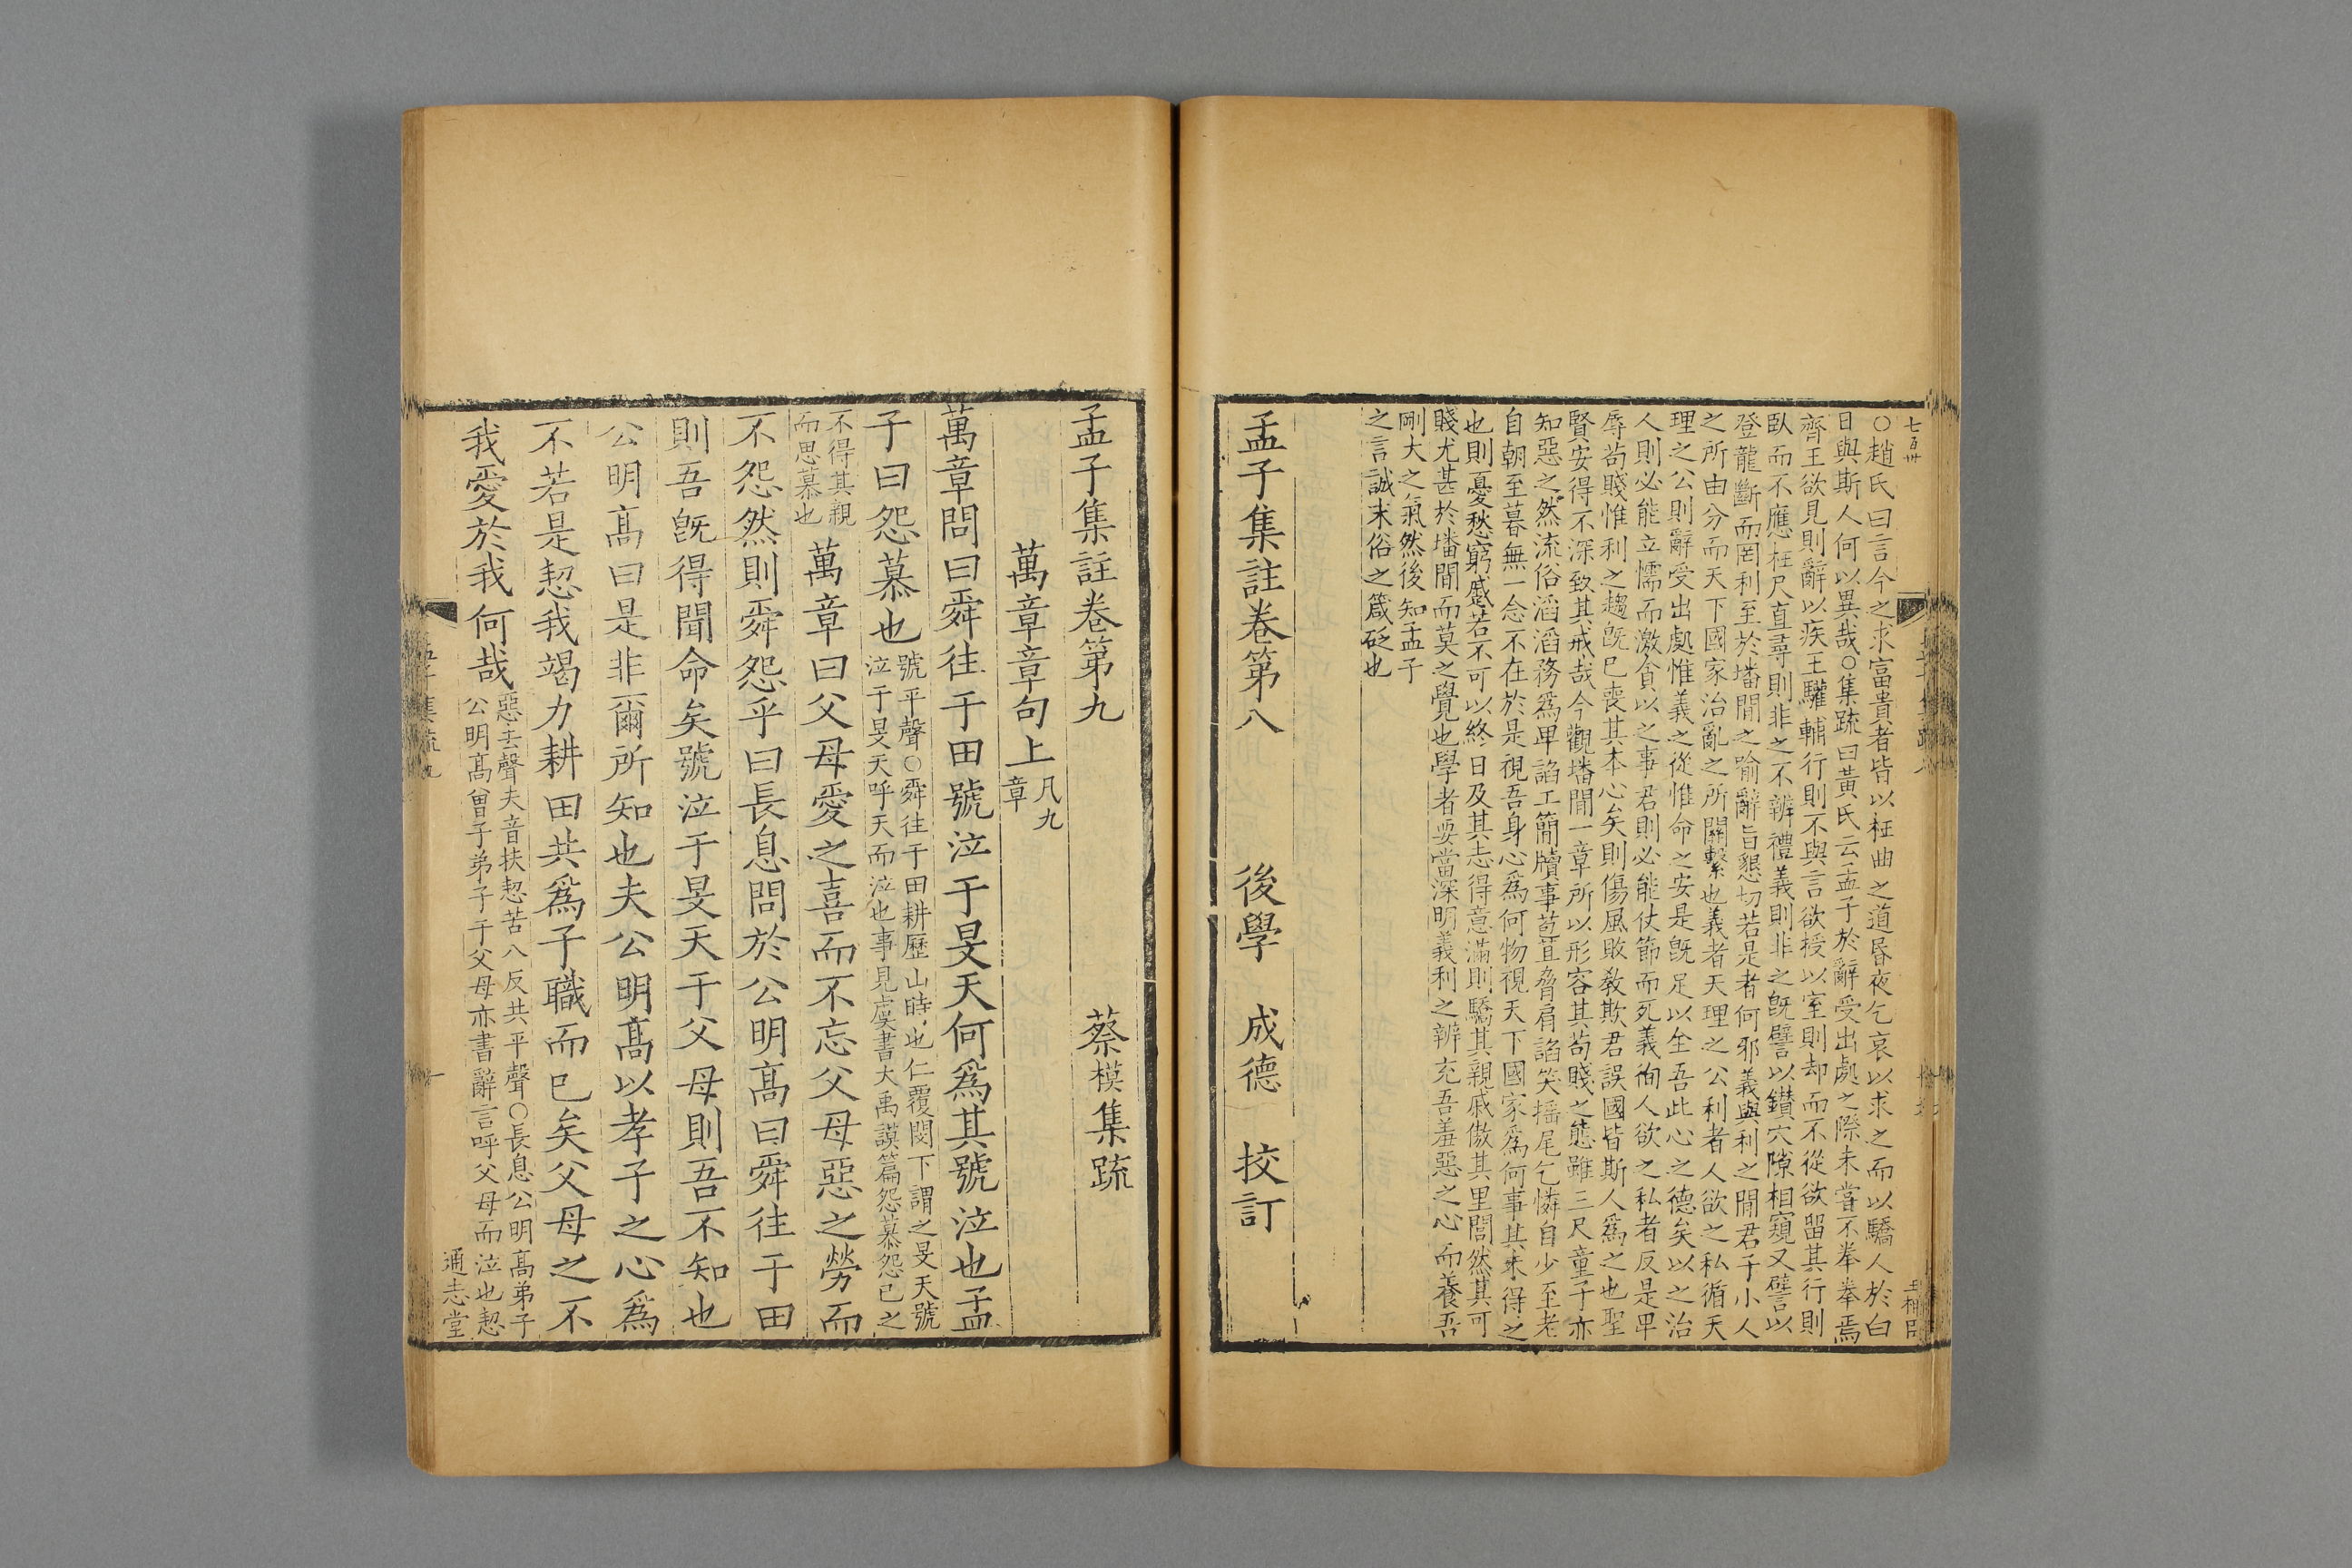 七百卅
○趙氏曰言今之求富貴者皆以枉曲之道昬夜乞哀以求之而以驕人於白
日與斯人何以異哉○集疏曰黃氏云孟子於辭受出處之際未嘗不拳拳焉
齊王欲見則辭以疾王驩輔行則不與言欲授以室則却而不從欲留其行則
臥而不應枉尺直尋則非之不辨禮義則非之旣譬以鑚穴隙相窺又譬以
登龍斷而罔利至於墦閒之喻辭旨懇切若是者何邪義與利之閒君子小人
之所由分而天下國家治亂之所關繫也義者天理之公利者人欲之私循天
理之公則辭受出處惟義之從惟命之安是旣足以全吾此心之德矣以之治
人則必能立懦而激貪以之事君則必能仗節而死義徇人欲之私者反是卑
辱茍賤惟利之趨旣已喪其本心矣則傷風敗敎欺君誤國皆斯人爲之也聖
賢安得不深致其戒哉今觀墦閒一章所以形容其茍賤之態雖三尺童子亦
知惡之然流俗滔滔務爲卑諂工簡牘事苞苴脅肩諂笑搖尾乞憐自少至老
自朝至暮無一念不在於是視吾身心爲何物視天下國家爲何事其未得之
也則憂愁窮蹙若不可以終日及其志得意滿則驕其親戚傲其里閭然其可
賤尤甚於墦間而莫之覺也學者要當深明義利之辨充吾羞惡之心而養吾
剛大之氣然後知孟子
之言誠末俗之箴砭也
孟子集註卷第八 後學 成德 挍訂
孟子集註卷第九
蔡模集疏
萬章章句上 凡九
章
萬章問曰舜往于田號泣于旻天何爲其號泣也孟
子曰怨慕也 號平聲○舜往于田耕歷山時也仁覆閔下謂之旻天號
泣于旻天呼天而泣也事見虞書大禹謨篇怨慕怨己之
不得其親
而思慕也 萬章曰父母愛之喜而不忘父母惡之勞而
不怨然則舜怨乎曰長息問於公明高曰舜往于田
則吾旣得聞命矣號泣于旻天于父母則吾不知也
公明高曰是非爾所知也夫公明高以孝子之心爲
不若是恝我竭力耕田共爲子職而已矣父母之不
我愛於我何哉 惡去聲夫音扶恝苦八反共平聲○長息公明高弟子
公明高曾子弟子于父母亦書辭言呼父母而泣也恝
通志堂